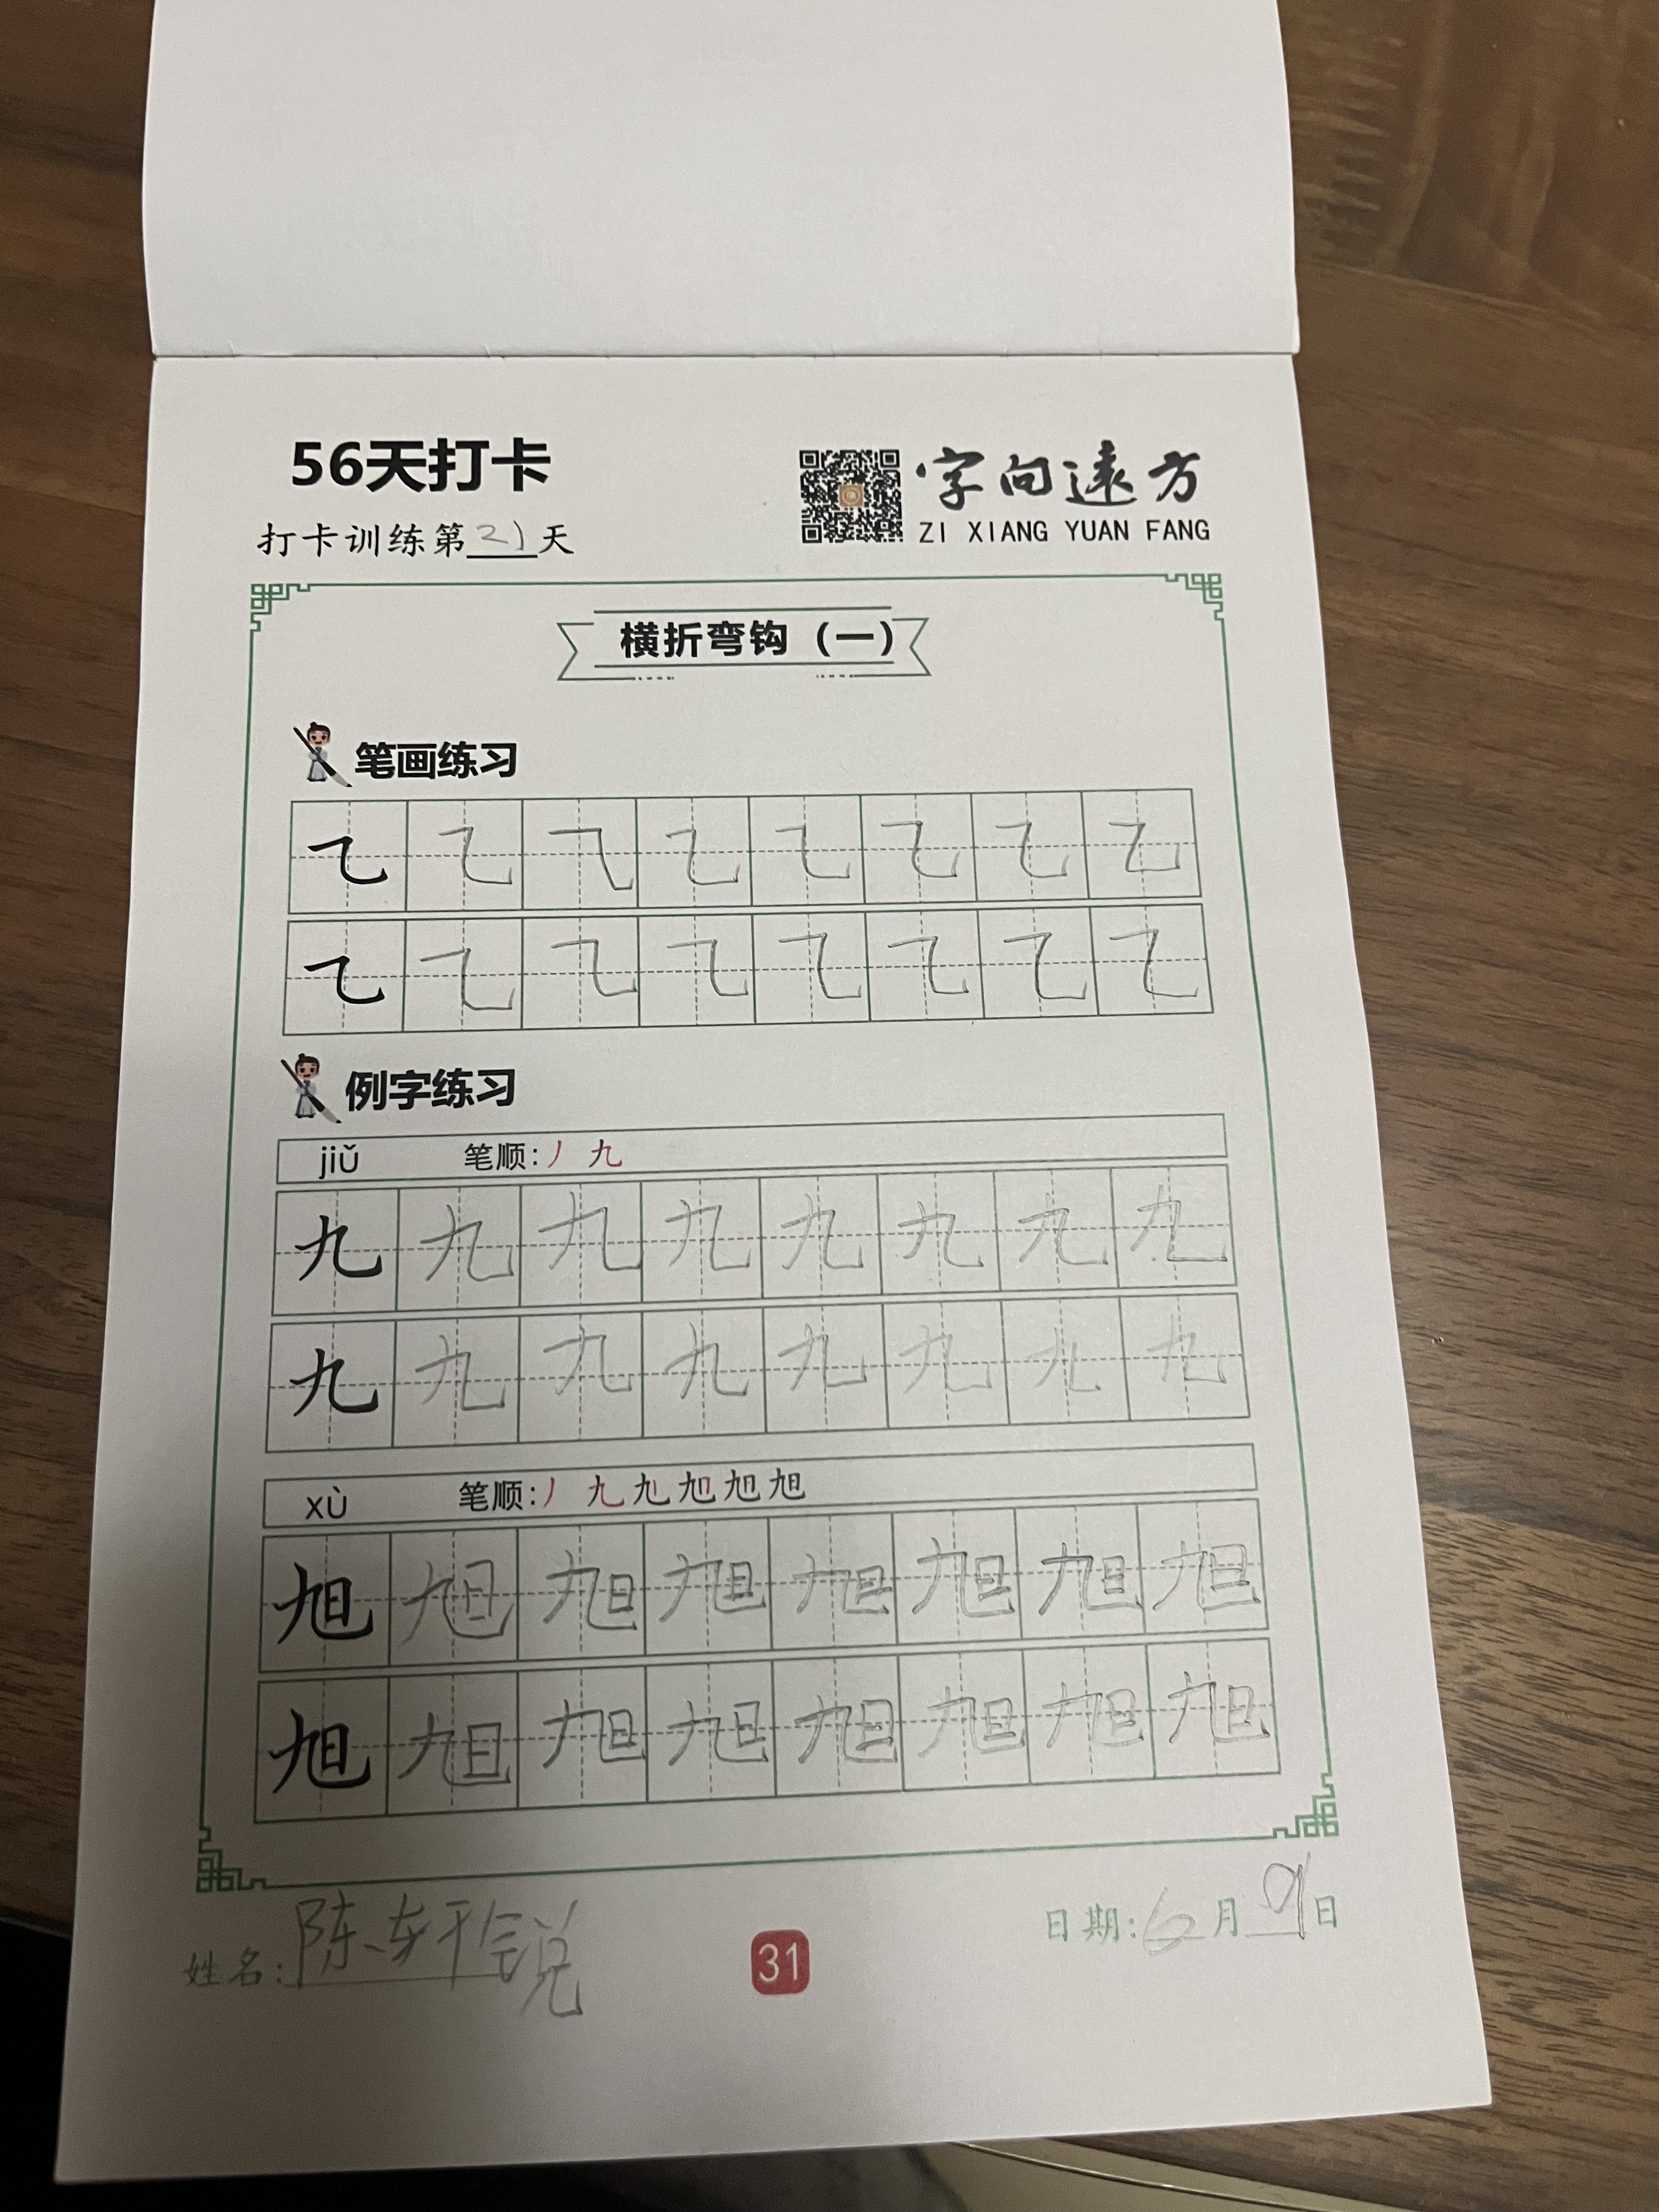 56天打卡
字向远方
ZI XIANG YUAN FANG
打卡训练第21天
横折弯钩（一）
笔画练习
㇈ ㇈ ㇈ ㇈ ㇈ ㇈ ㇈ ㇈
㇈ ㇈ ㇈ ㇈ ㇈ ㇈ ㇈ ㇈
例字练习
jiǔ 笔顺:丿 九
九 九 九 九 九 九 九 九
九 九 九 九 九 九 九 九
xù 笔顺:丿 九 九 旭 旭 旭
旭 旭 旭 旭 旭 旭 旭 旭
旭 旭 旭 旭 旭 旭 旭 旭
姓名:陈轩锐
31
日期:6月9日